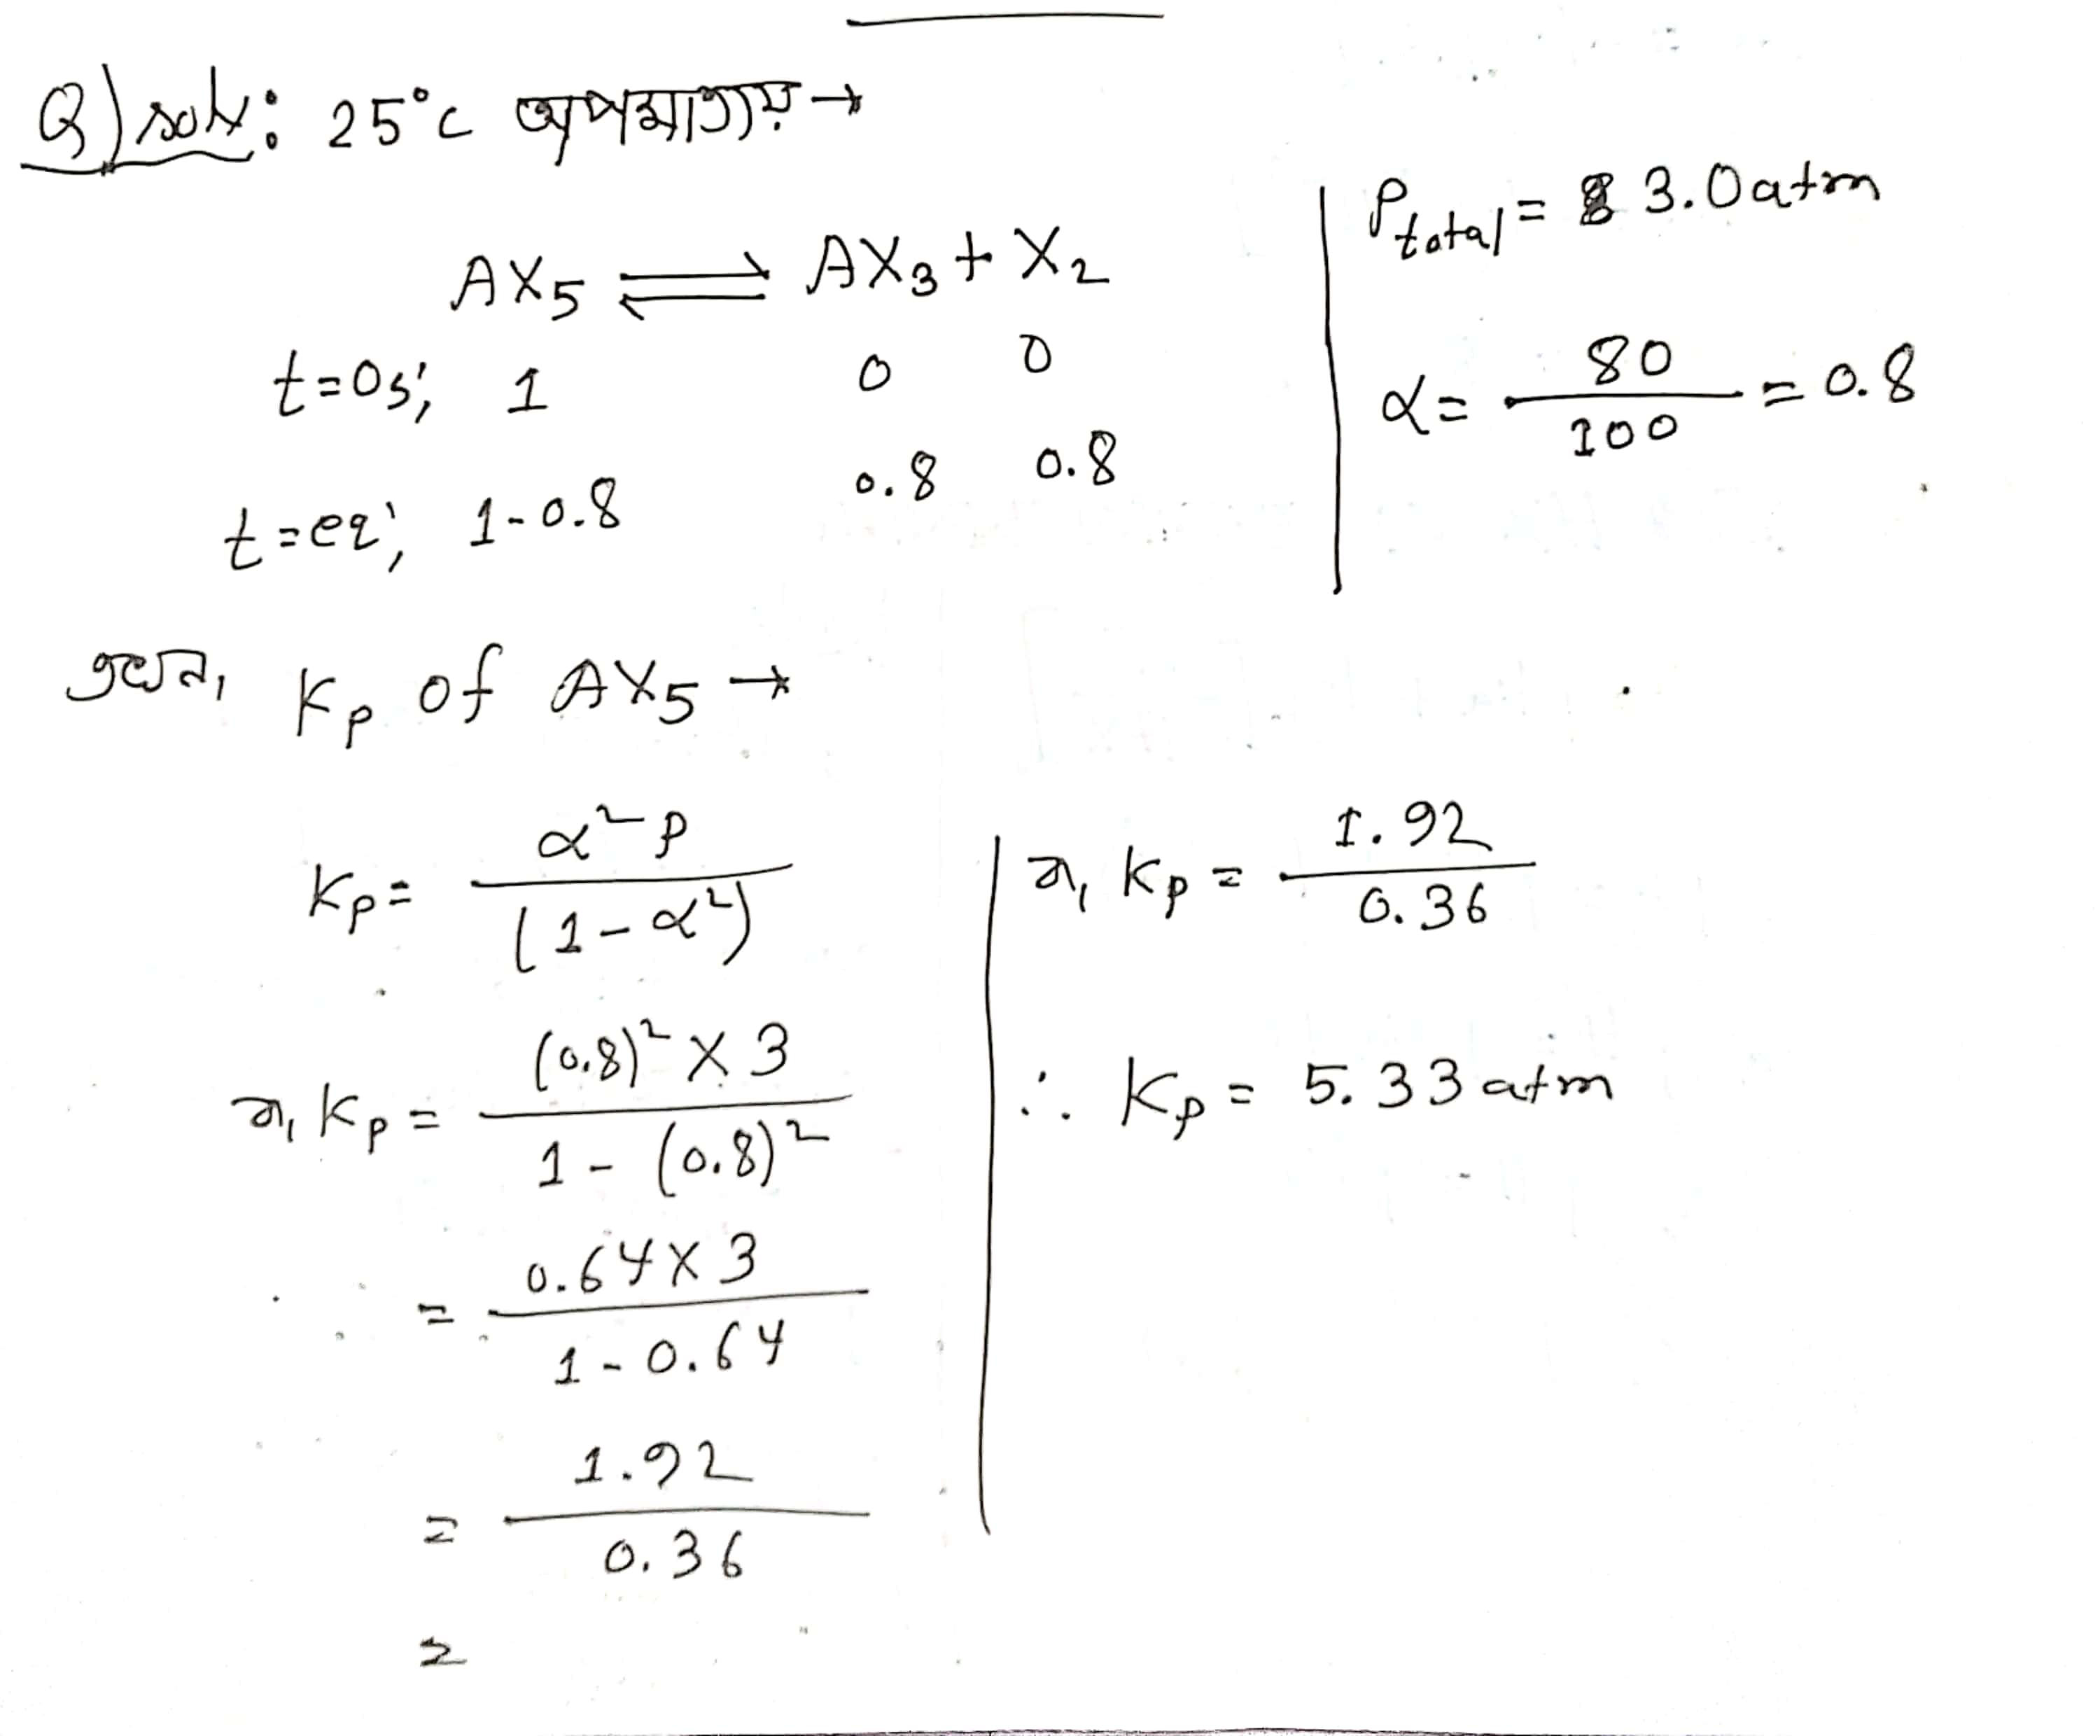 Q) solv: 25°c তাপমাত্রায় →
AX₅ ⇌ AX₃ + X₂
t=0s; 1 0 0
t=eq; 1-0.8 0.8 0.8
P total = 3.0 atm
α = 80/100 = 0.8
এখন, Kp of AX₅ →
Kp = α²P/(1-α²)
বা, Kp = (0.8)² × 3/1 - (0.8)²
= 0.64 × 3/1 - 0.64
= 1.92/0.36
=
বা, Kp = 1.92/0.36
∴ Kp = 5.33 atm